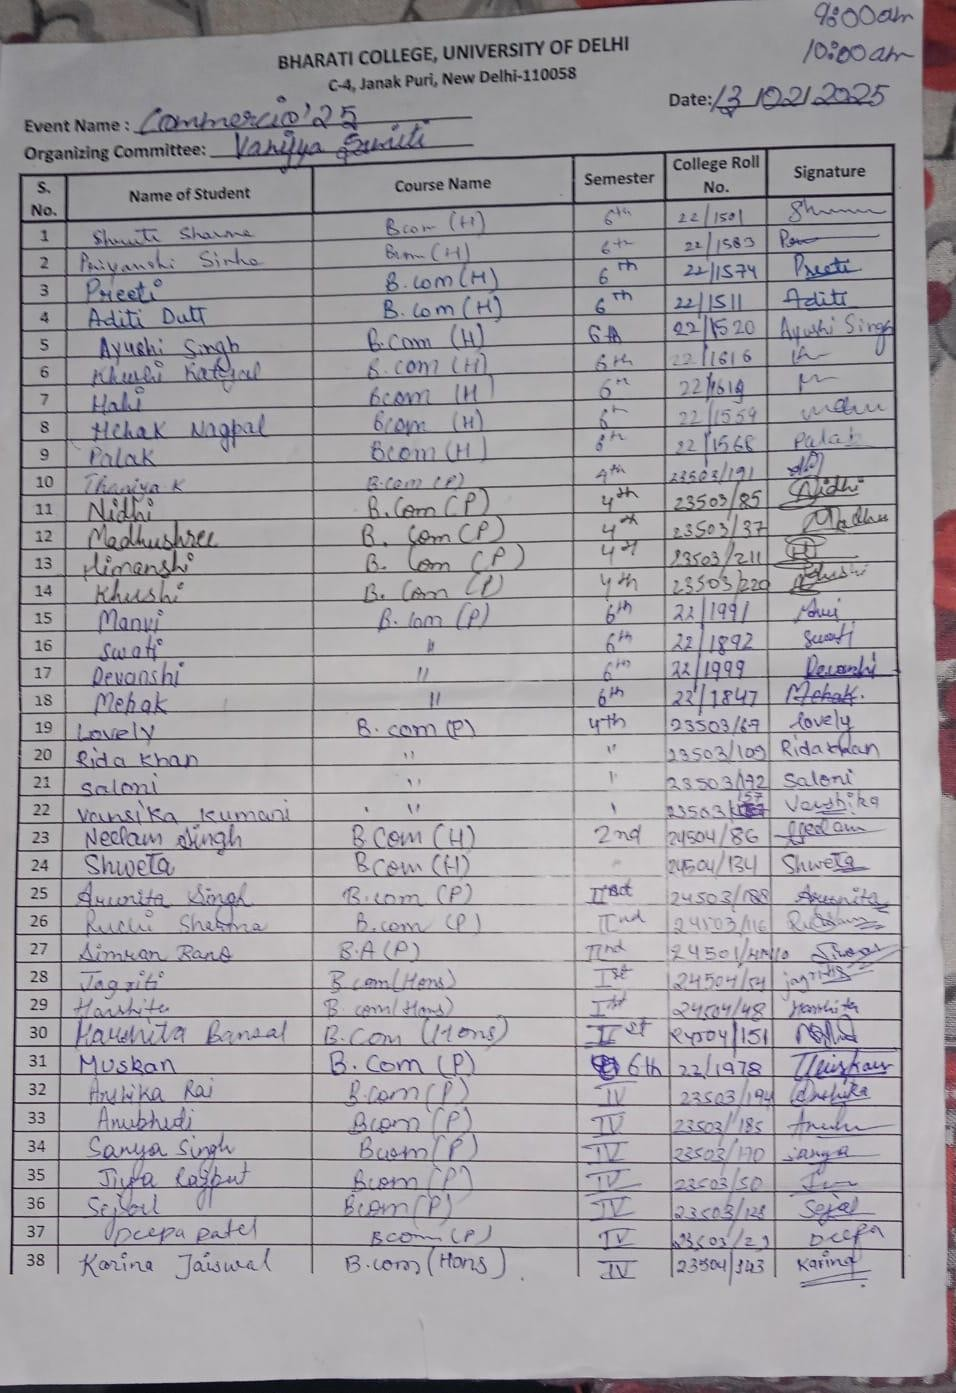 9:00am
10:00am
BHARATI COLLEGE, UNIVERSITY OF DELHI
C-4, Janak Puri, New Delhi-110058
Date: 13/02/2025
Event Name : Commercio'25
Organizing Committee: Vanijya Samiti
S. No. Name of Student Course Name Semester College Roll No. Signature
1 Shruti Sharma Bcom (H) 6th 22/1501
2 Priyanshi Sinha Bcom (H) 6th 22/1583
3 Preeti B.com (H) 6th 22/1574 Preeti
4 Aditi Dutt B.com (H) 6th 22/1511 Aditi
5 Ayushi Singh B.com (H) 6th 22/1520 Ayushi Singh
6 Khushi Katyal B.com (H) 6th 22/1616
7 Mahi Bcom (H) 6th 22/1619
8 Mehak Nagpal Bcom (H) 6th 22/1559
9 Palak Bcom (H) 6th 22/1568 Palak
10 Thaniya K B.com (P) 4th 23503/191
11 Nidhi B.Com (P) 4th 23503/85 Nidhi
12 Madhushree B. Com (P) 4th 23503/37 Madhu
13 Himanshi B. Com (P) 4th 23503/211 H
14 Khushi B. Com (P) 4th 23503/220 Khushi
15 Manvi B.com (P) 6th 22/1991
16 Swati " 6th 22/1892 Swati
17 Devanshi " 6th 22/1999 Devanshi
18 Mehak " 6th 22/1847 Mehak.
19 Lovely B.com (P) 4th 23503/67 lovely
20 Rida Khan " " 23503/109 Rida khan
21 Saloni " " 23503/172 Saloni
22 Vansika Kumari " " 23503/157 Vanshika
23 Neelam Singh B Com (H) 2nd 24504/86 Neelam
24 Shweta B Com (H) " 24504/134 Shweta
25 Arunita Singh B.com (P) 24503/188 Arunita
26 Ruchi Sharma B.com (P) IInd 24503/116
27 Simran Bano B.A (P) IInd 24501/
28 Jagriti B com (Hons) Ist 24504/54 jagriti
29 Harshita B. com (Hons) Ist 24504/48 Harshita
30 Harshita Bansal B.Com (Hons) 24504/151
31 Muskan B.Com (P) 6th 22/1978 Muskan
32 Anshika Rai B.com (P) IV 23503/194 Anshika
33 Anubhuti Bcom (P) IV 23503/185
34 Sanya Singh Bcom (P) IV 23503/170 Sanya
35 Jiya Rajput Bcom (P) IV 23503/50
36 Sejal Bcom (P) IV 23503/128 Sejal
37 Deepa patel Bcom (P) IV 23503/29 Deepa
38 Karina Jaiswal B.com (Hons) IV 23504/143 Karina